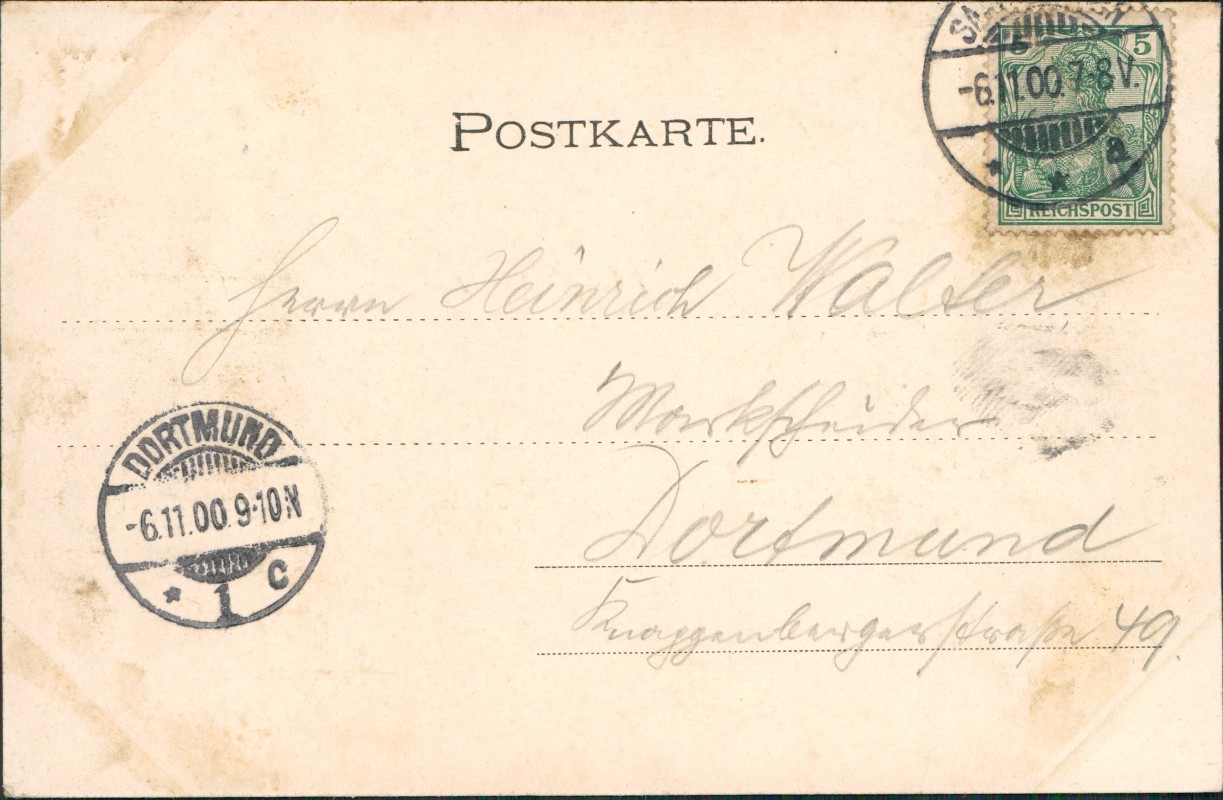 5 5
-6.11.00.7-8V.
a
REICHSPOST
POSTKARTE.
Herrn Heinrich Walter
Markscheider
Dortmund
Knappenbergerstraße 49.
DORTMUND
-6.11.00.9-10N
* 1 c